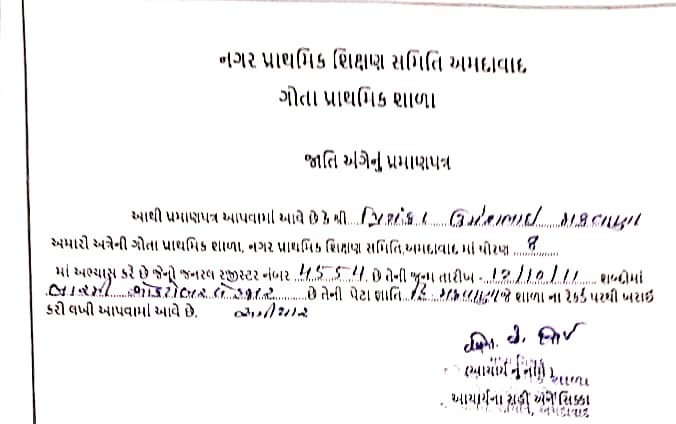 નગર પ્રાથમિક શિક્ષણ સમિતિ અમદાવાદ
ગોતા પ્રાથમિક શાળા
જાતિ અંગેનું પ્રમાણપત્ર
આથી પ્રમાણપત્ર આપવામાં આવે છે કે શ્રી પ્રિયંકા ઉમંગભાઇ મકવાણા
અમારી અત્રેની ગોતા પ્રાથમિક શાળા, નગર પ્રાથમિક શિક્ષણ સમિતિ,અમદાવાદ માં ધોરણ 8
માં અભ્યાસ કરે છે જેનો જનરલ રજીસ્ટર નંબર 4554 છે તેની જન્મ તારીખ - 12/10/11 શબ્દોમાં
બારમી ઓક્ટોબર બે હજાર છે તેની પેટા જ્ઞાતિ હિં મકવાણા જે શાળા ના રેકર્ડ પરથી ખરાઇ
કરી લખી આપવામાં આવે છે. અગીયાર
(આચાર્ય નું નામ)
શાળા
આચાર્યના સહી અને સિક્કા
અમદાવાદ